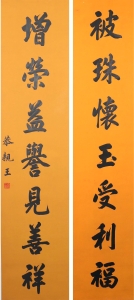 被珠懷玉受利福
增榮益譽見善祥
恭親王